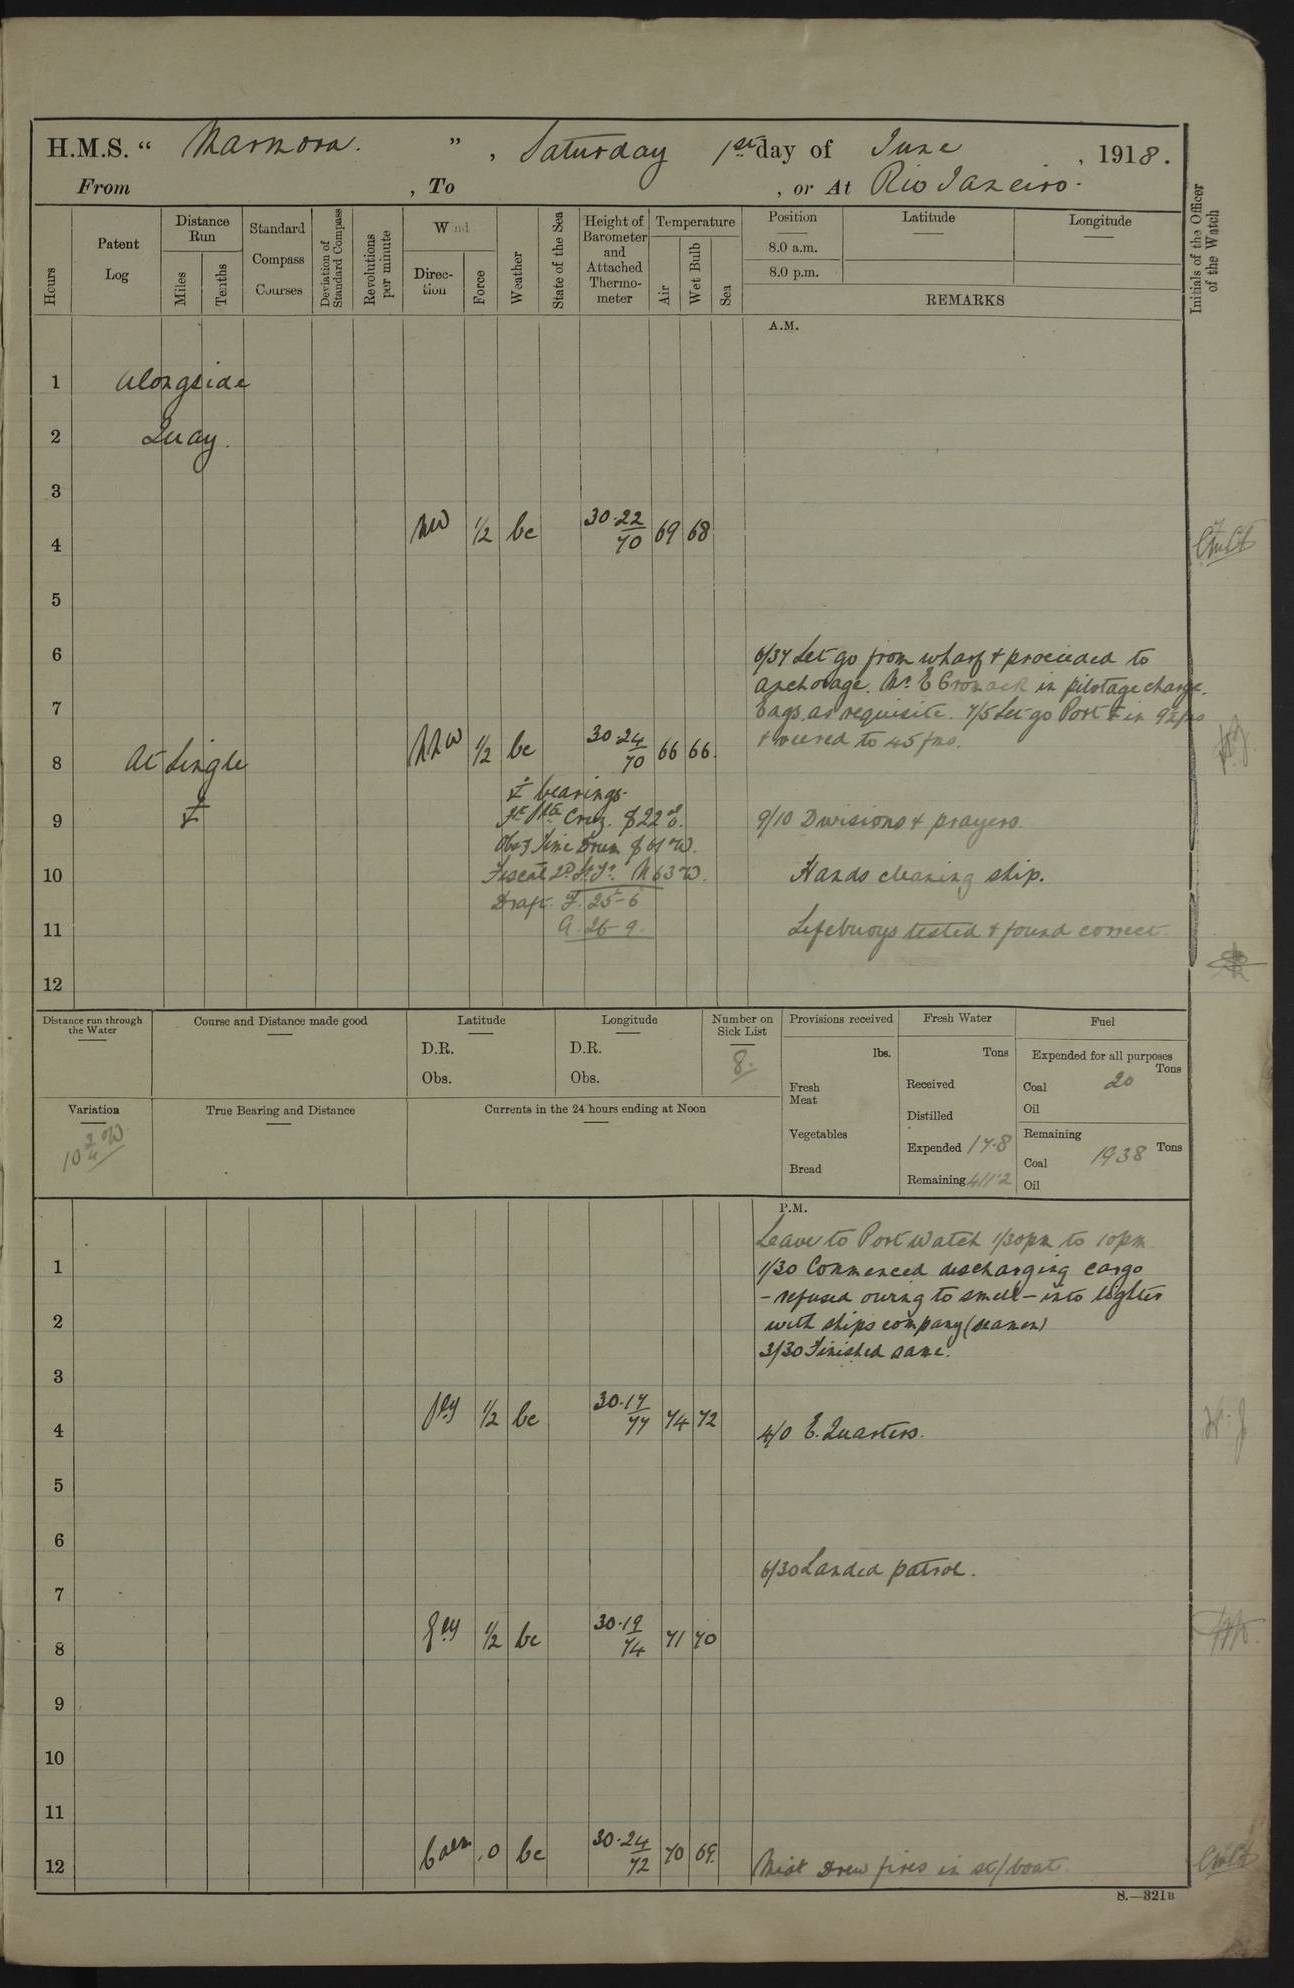 H.M.S. " Marmora. " , Saturday 1st day of June , 1918.
From , To , or At Rio Janeiro.
Hours
Patent Log
Distance Run
Miles
Tenths
Standard Compass Courses
Deviation of Standard Compass
Revolutions per minute
Wind
Direction
Force
Weather
State of the Sea
Height of Barometer and Attached Thermometer
Temperature
Air
Wet Bulb
Sea
Position
8.0 a.m.
8.0 p.m.
Latitude
Longitude
REMARKS
Initials of the Officer of the Watch
A.M.
1 Alongside
2 Quay.
3
4 NW 1/2 bc 30.22/70 69 68
5
6 6/37 Let go from wharf & proceeded to
anchorage. Mr. E Cromack in pilotage charge.
7 Engs. as requisite. 7/5 Let go Port ⚓ in 9½ fms
& veered to 45 fms.
8 At Single NNW 1/2 bc 30.24/70 66 66.
⚓ bearings.
9 ⚓ Cruz. S 22° E. 9/10 Divisions & prayers.
S 61° W.
10 Fiscal Id. N 63 W. Hands cleaning ship.
Draft. F. 25-6
11 A. 26-9. Lifebuoys tested & found correct
12
Distance run through the Water
Course and Distance made good
Latitude
D.R.
Obs.
Longitude
D.R.
Obs.
Number on Sick List
8.
Provisions received
lbs.
Fresh Meat
Vegetables
Bread
Fresh Water
Tons
Received
Distilled
Expended 17.8
Remaining 411.2
Fuel
Expended for all purposes
Tons
Coal 20
Oil
Remaining
Coal 1938 Tons
Oil
Variation
10 3/4 W
True Bearing and Distance
Currents in the 24 hours ending at Noon
P.M.
Leave to Port Watch 1/30pm to 10pm
1 1/30 Commenced discharging cargo
- refused owing to smell - into lighter
2 with ships company (seamen)
3/30 Finished same.
3
4 S'ly 1/2 bc 30.17/77 74 72 4/0 E. Quarters.
5
6
6/30 Landed patrol.
7
8 S'ly 1/2 bc 30.19/74 71 70
9
10
11
12 Calm 0 bc 30.24/72 70 69. Mist Drew fires in st/boat.
S.—321B